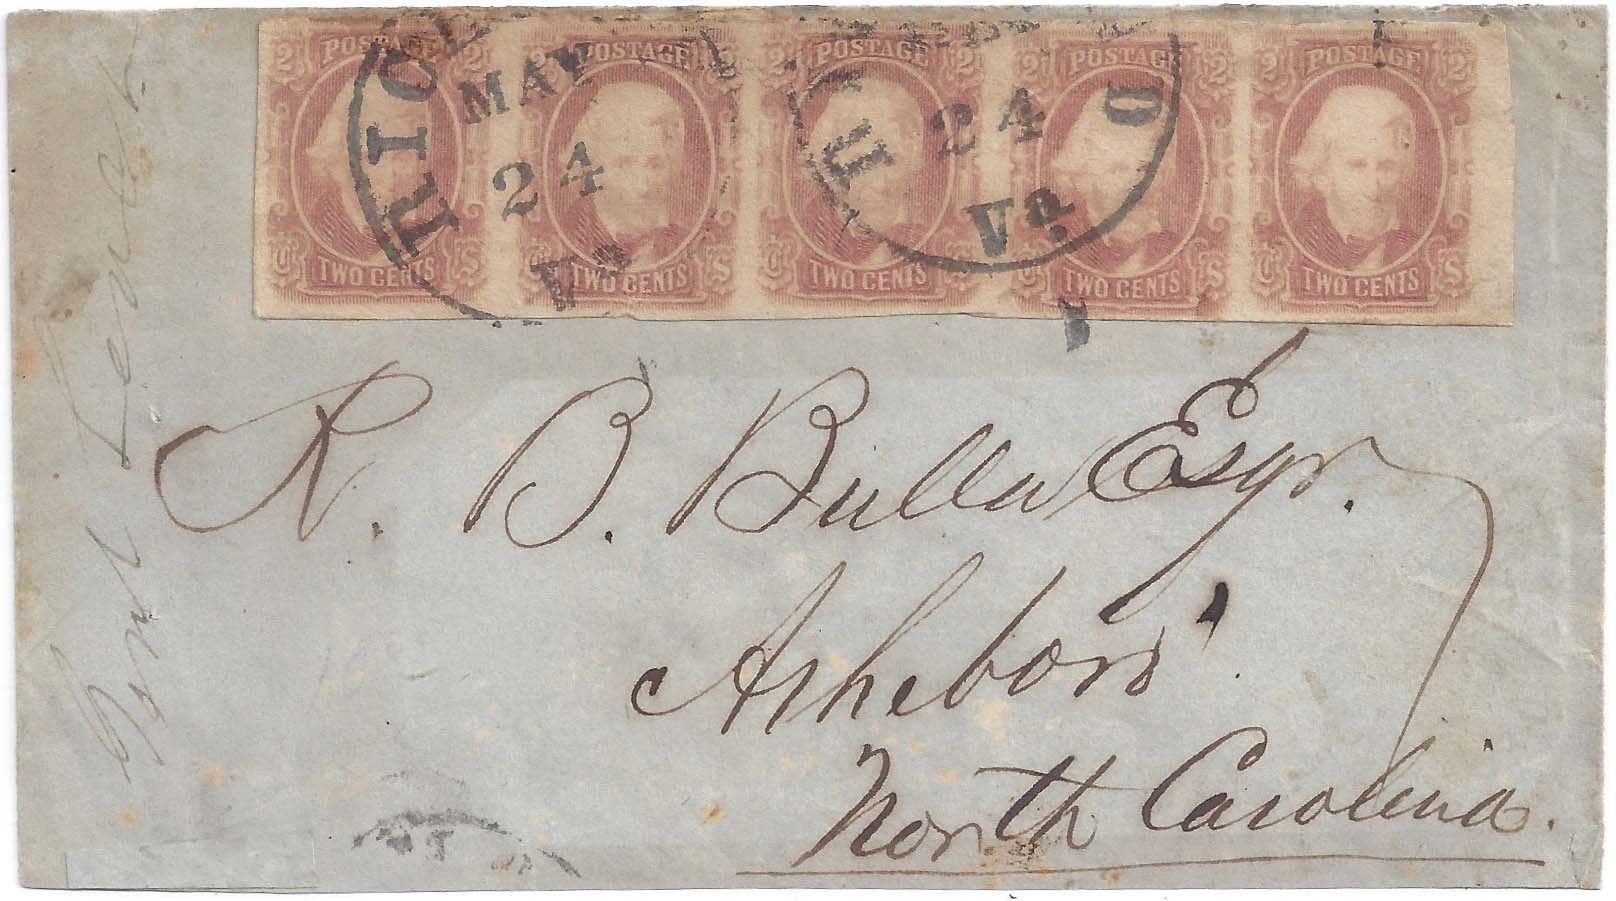 POSTAGE POSTAGE POSTAGE POSTAGE POSTAGE
2 2 2 2 2 2 2 2 2
TWO CENTS TWO CENTS TWO CENTS TWO CENTS TWO CENTS
RIC
MAY
24
Va
D
24
Va
R. B. Bulla Esqr.
Asheboro'
North Carolina.